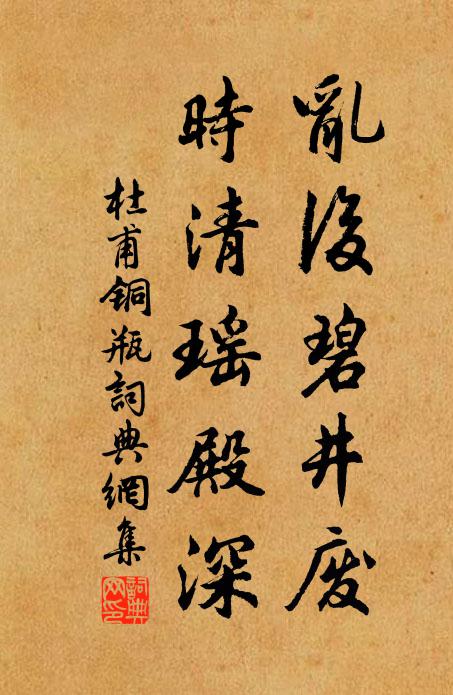 亂後碧井废
時清瑶殿深
杜甫铜瓶詞典網集
詞典网印